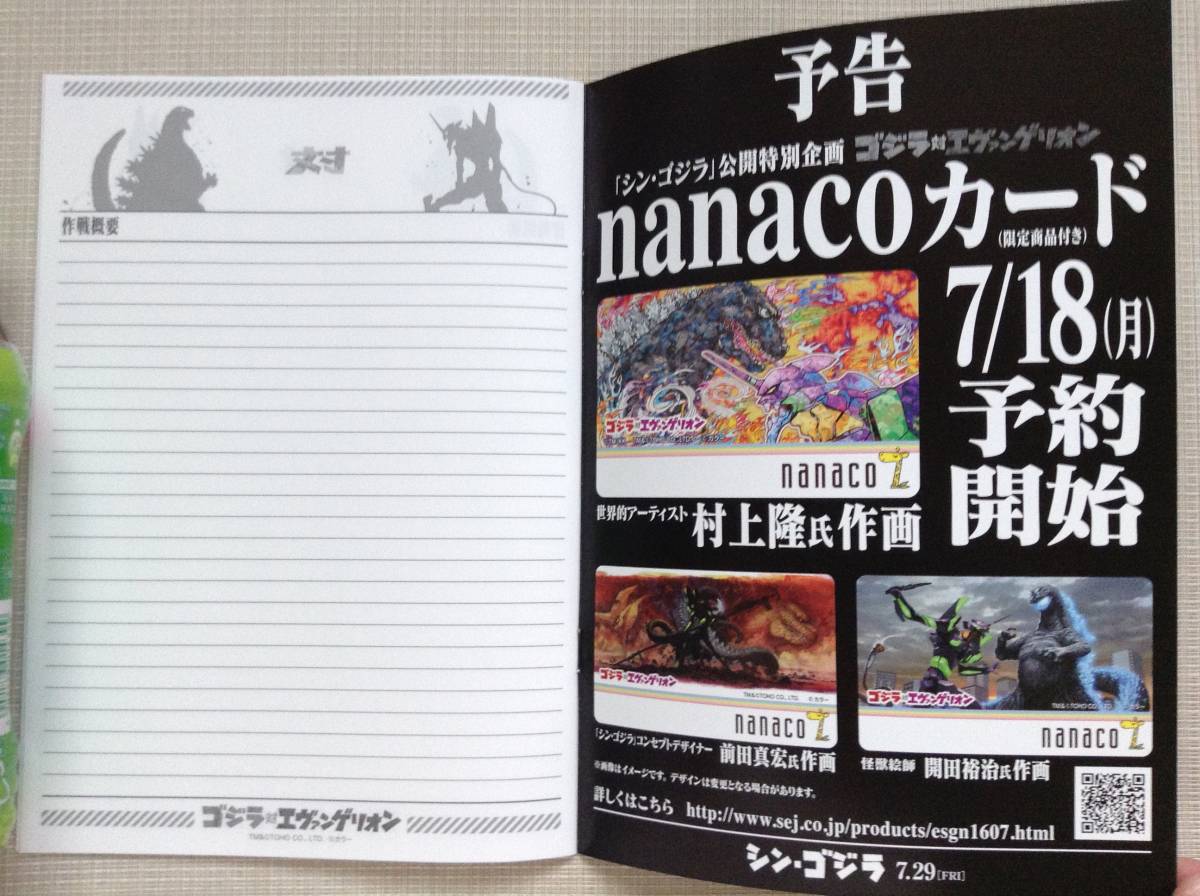 対
作戦概要
ゴジラ対エヴァンゲリオン
TM&©TOHO CO., LTD. ©カラー
予告
「シン・ゴジラ」公開特別企画 ゴジラ対エヴァンゲリオン
nanacoカード
(限定商品付き)
7/18(月)
予約
開始
ゴジラ対エヴァンゲリオン
nanaco
世界的アーティスト 村上隆氏作画
ゴジラ対エヴァンゲリオン
TM&©TOHO CO., LTD. ©カラー
nanaco
「シン・ゴジラ」コンセプトデザイナー 前田真宏氏作画
ゴジラ対エヴァンゲリオン
TM&©TOHO CO., LTD. ©カラー
nanaco
怪獣絵師 開田裕治氏作画
※画像はイメージです。デザインは変更となる場合があります。
詳しくはこちら http://www.sej.co.jp/products/esgn1607.html
シン・ゴジラ 7.29[FRI]